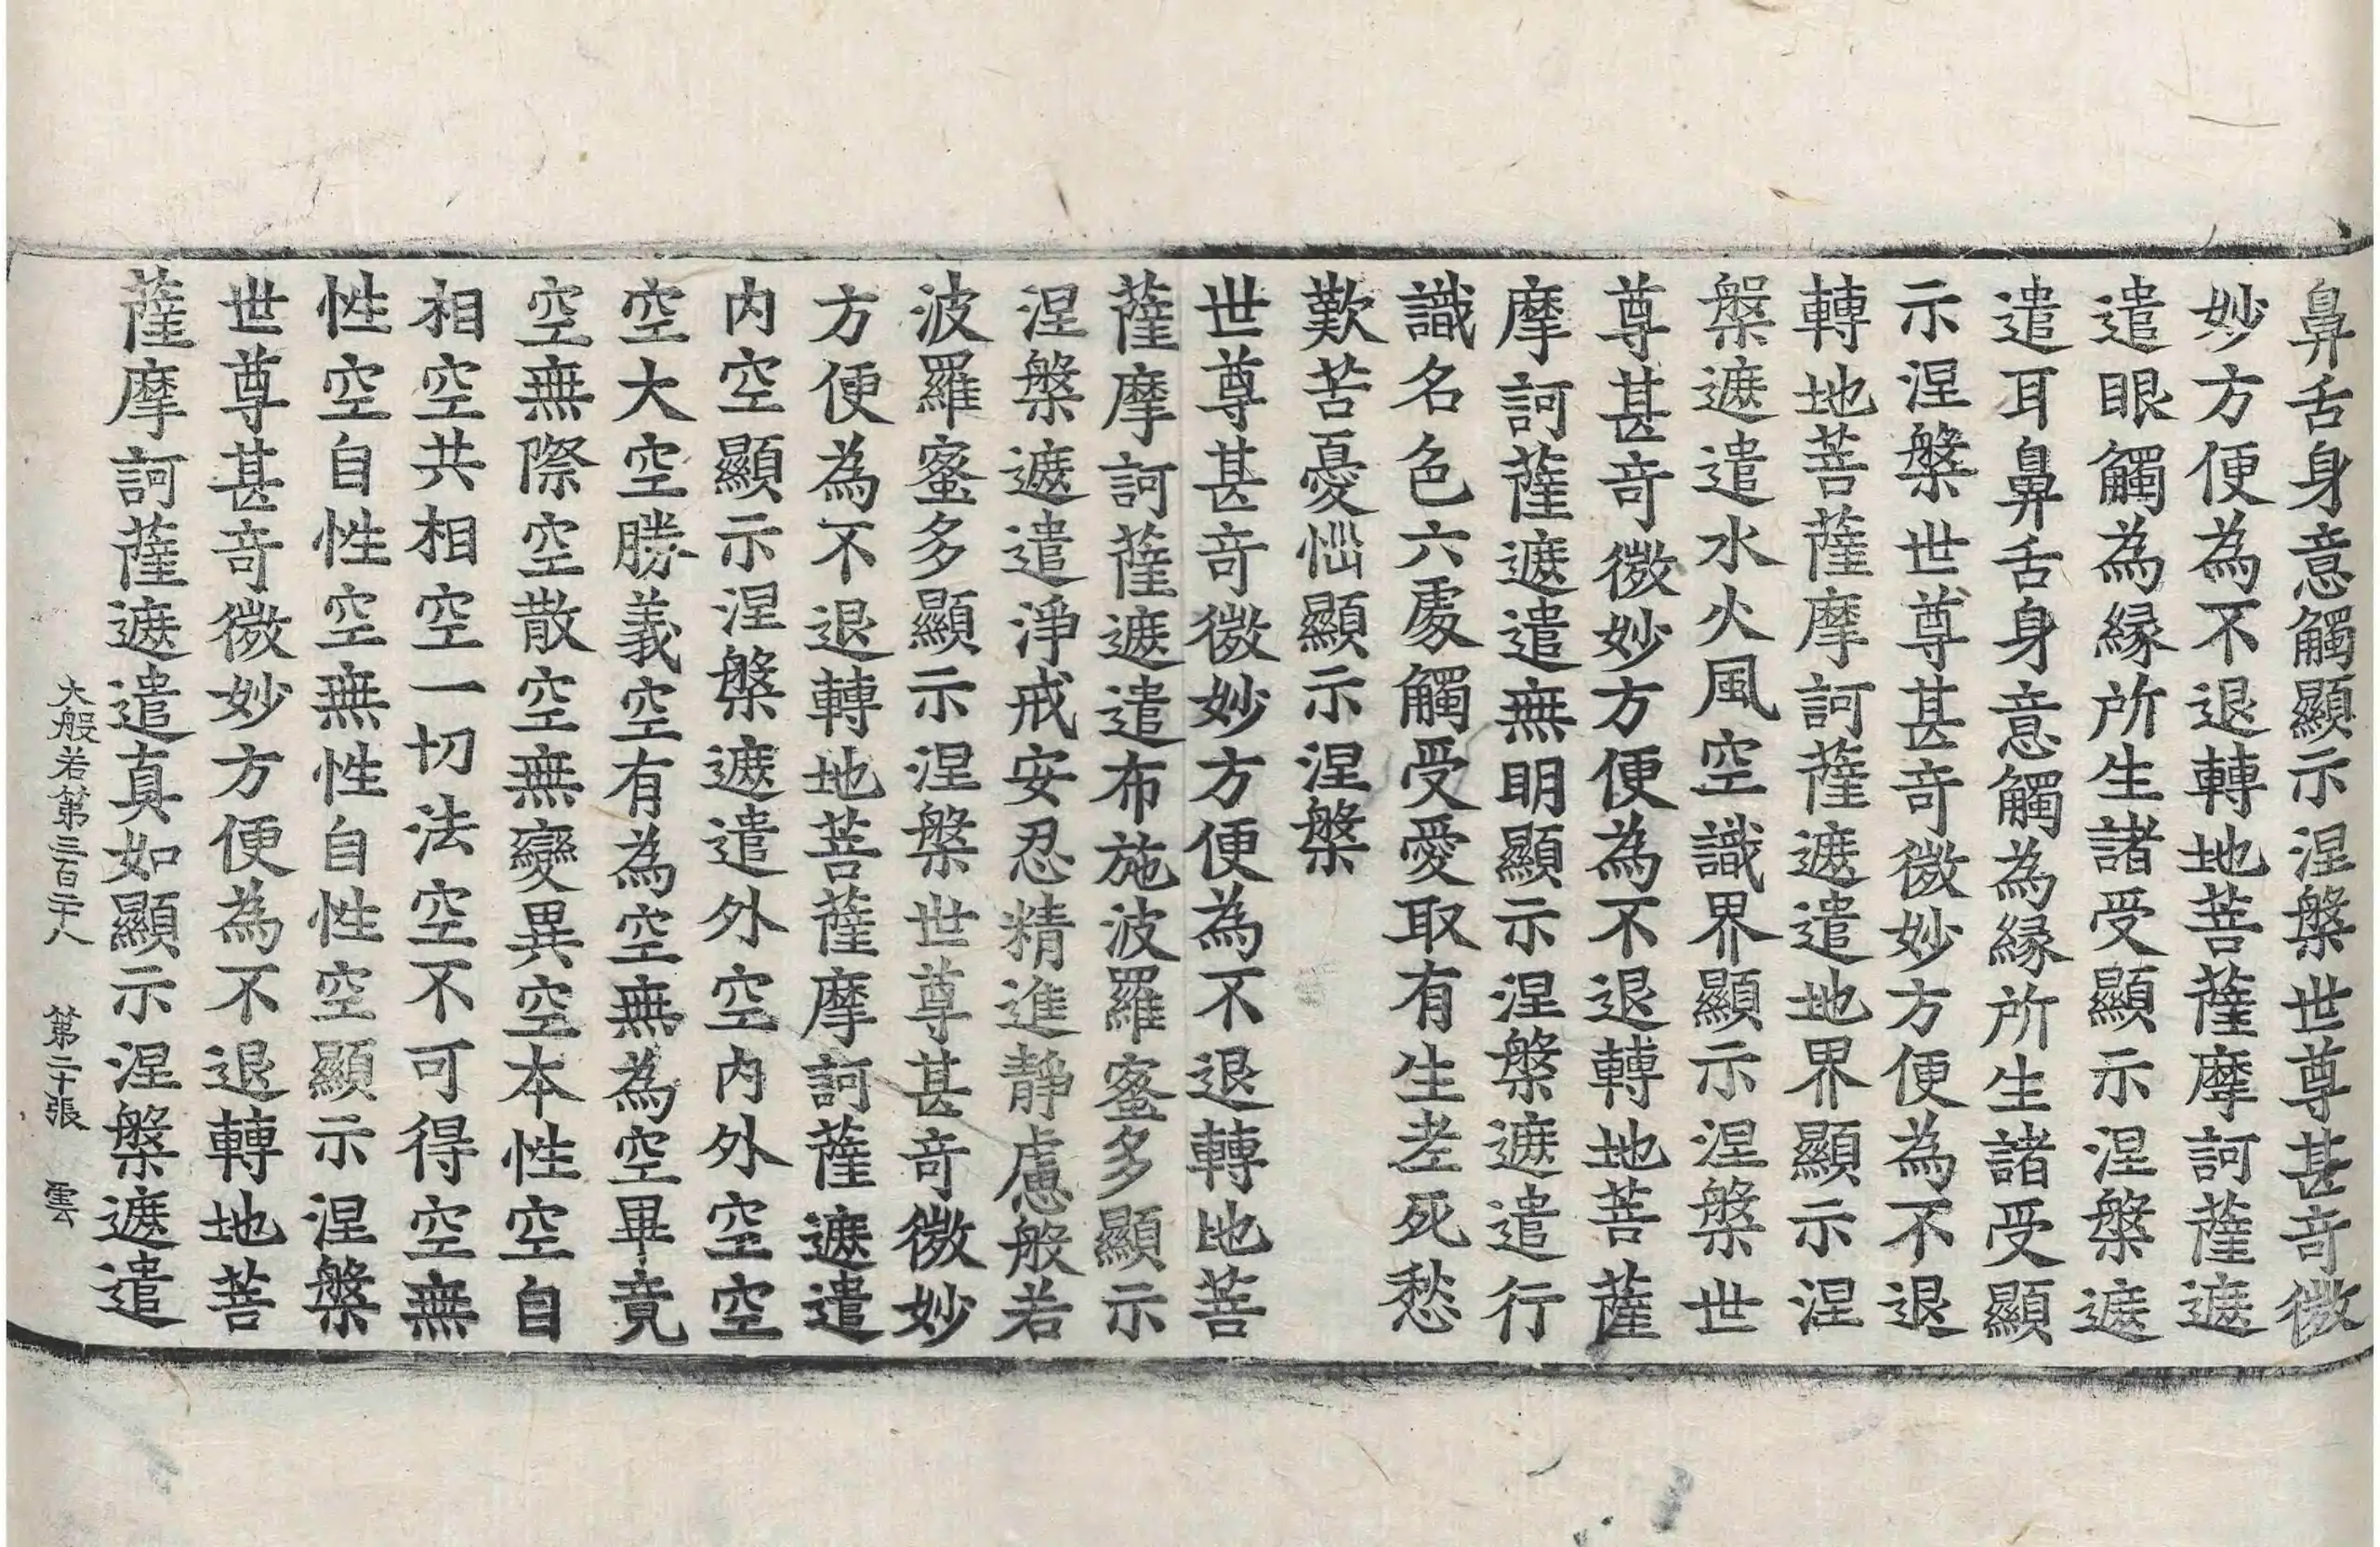 鼻舌身意觸顯示涅槃世尊甚奇微
妙方便為不退轉地菩薩摩訶薩遮
遣眼觸為緣所生諸受顯示涅槃遮
遣耳鼻舌身意觸為緣所生諸受顯
示涅槃世尊甚奇微妙方便為不退
轉地菩薩摩訶薩遮遣地界顯示涅
槃遮遣水火風空識界顯示涅槃世
尊甚奇微妙方便為不退轉地菩薩
摩訶薩遮遣無明顯示涅槃遮遣行
識名色六處觸受愛取有生老死愁
歎苦憂惱顯示涅槃
世尊甚奇微妙方便為不退轉地菩
薩摩訶薩遮遣布施波羅蜜多顯示
涅槃遮遣淨戒安忍精進靜慮般若
波羅蜜多顯示涅槃世尊甚奇微妙
方便為不退轉地菩薩摩訶薩遮遣
内空顯示涅槃遮遣外空内外空空
空大空勝義空有為空無為空畢竟
空無際空散空無變異空本性空自
相空共相空一切法空不可得空無
性空自性空無性自性空顯示涅槃
世尊甚奇微妙方便為不退轉地菩
薩摩訶薩遮遣真如顯示涅槃遮遣
大般若第三百二十八 第二十張 雲